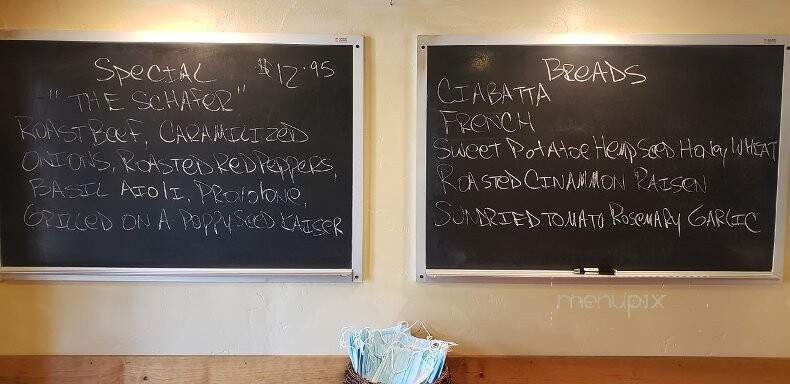 SPECIAL $12.95
"THE SCHAFER"
ROAST BEEF, CARAMILIZED
ONIONS, ROASTED RED PEPPERS,
BASIL AIOLI, PROVOLONE,
GRILLED ON A POPPYSEED KAISER
BREADS
CIABATTA
FRENCH
SWEET POTATOE HEMPSEED HONEY WHEAT
ROASTED CINAMMON RAISEN
SUNDRIED TOMATO ROSEMARY GARLIC
menupix